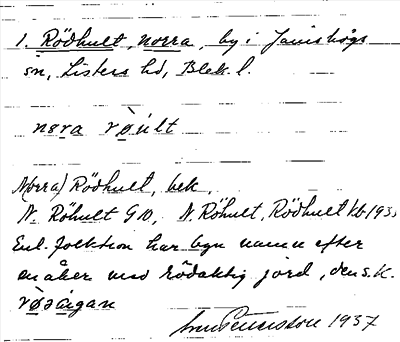 1. Rödhult, norra, by i Jämshögs
sn, Listers hd, Blek. l.
nɷra rø̀ult
Norra) Rödhult, bek.
N. Röhult G10, N. Röhult, Rödhult kb 193
Enl. folktron har byn namn efter
en åker med rödaktig jord, den s.k.
1937